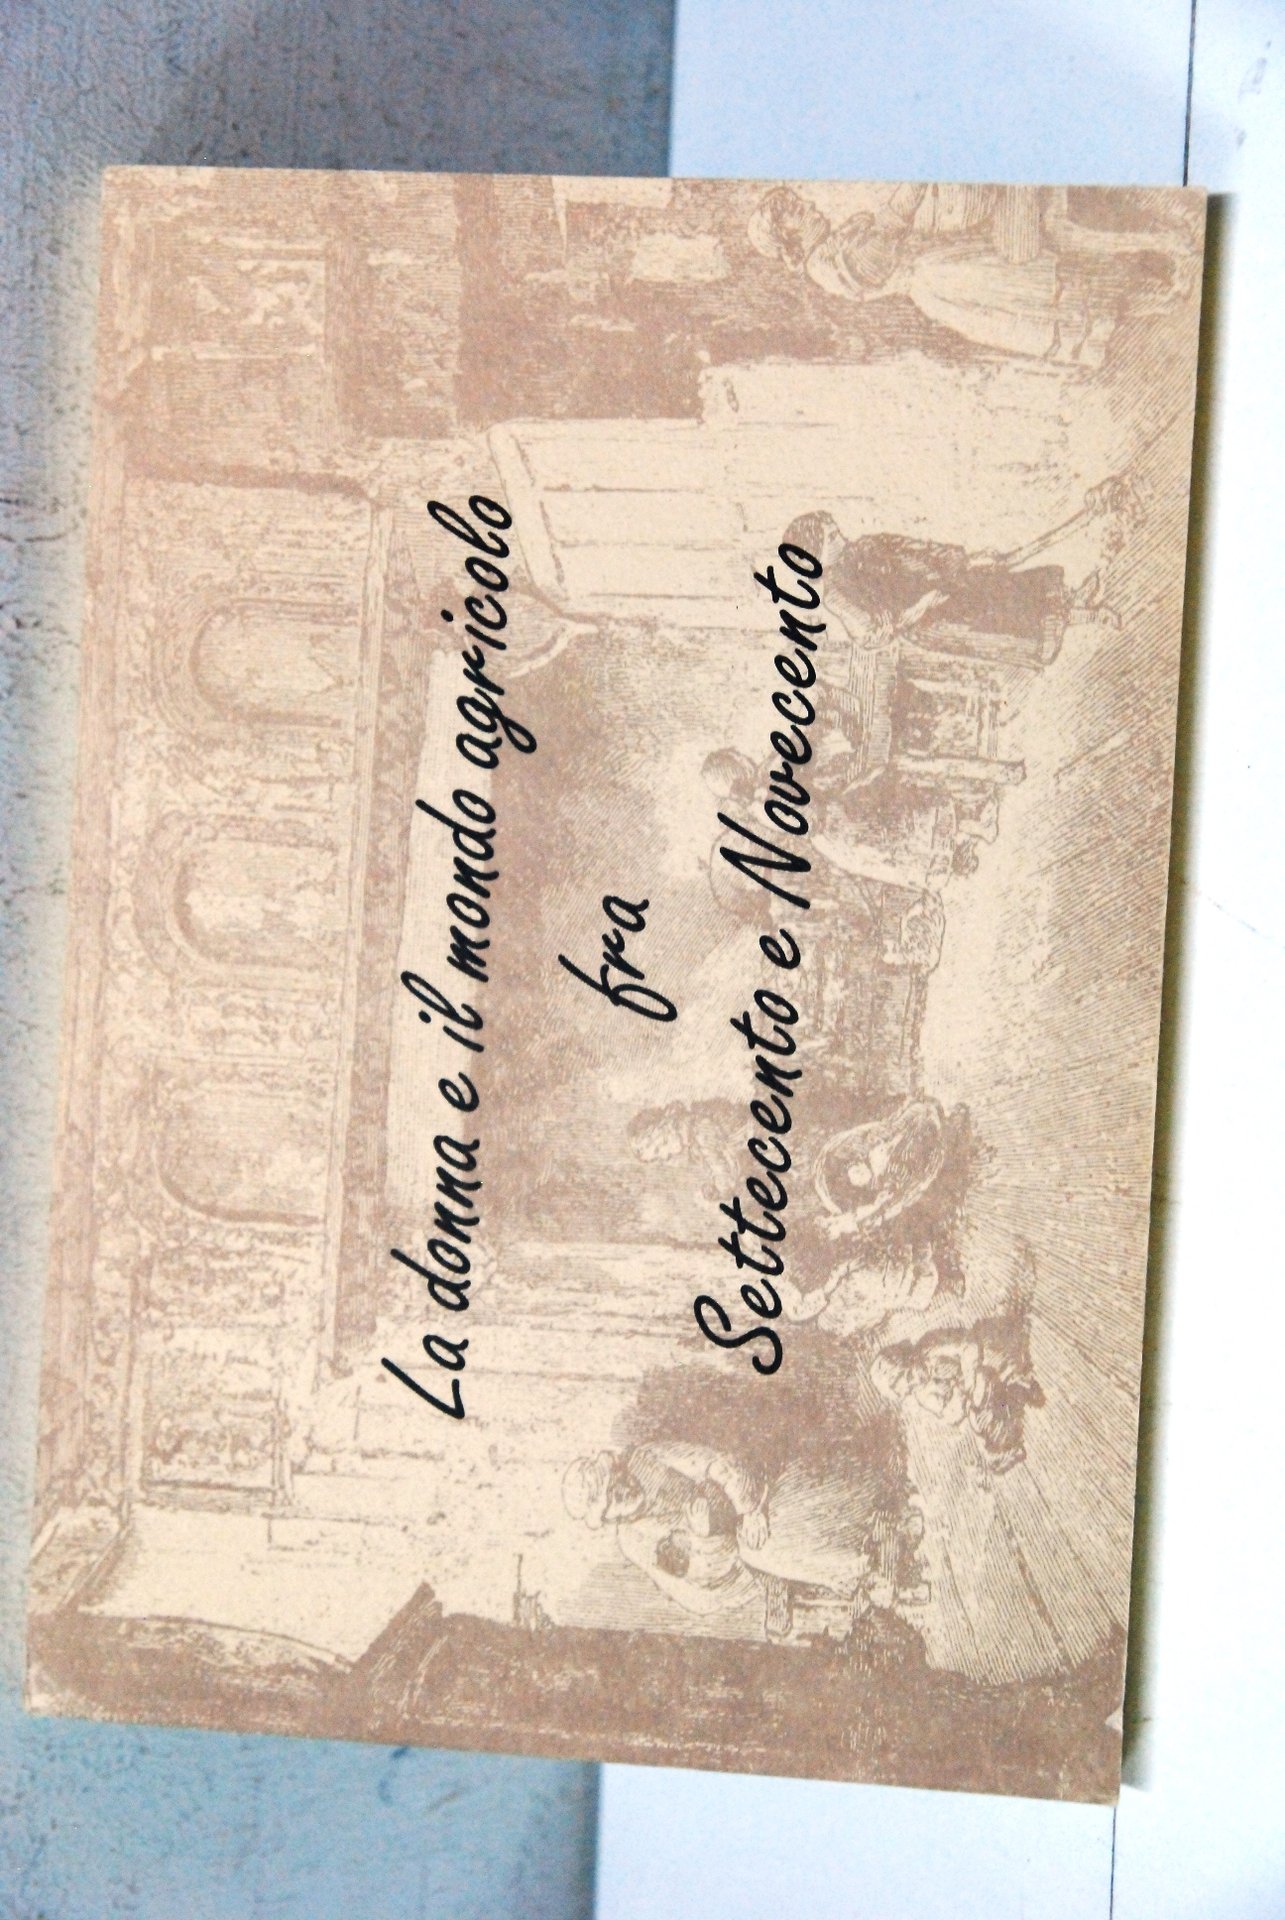 La donna e il mondo agricolo
fra
Settecento e Novecento